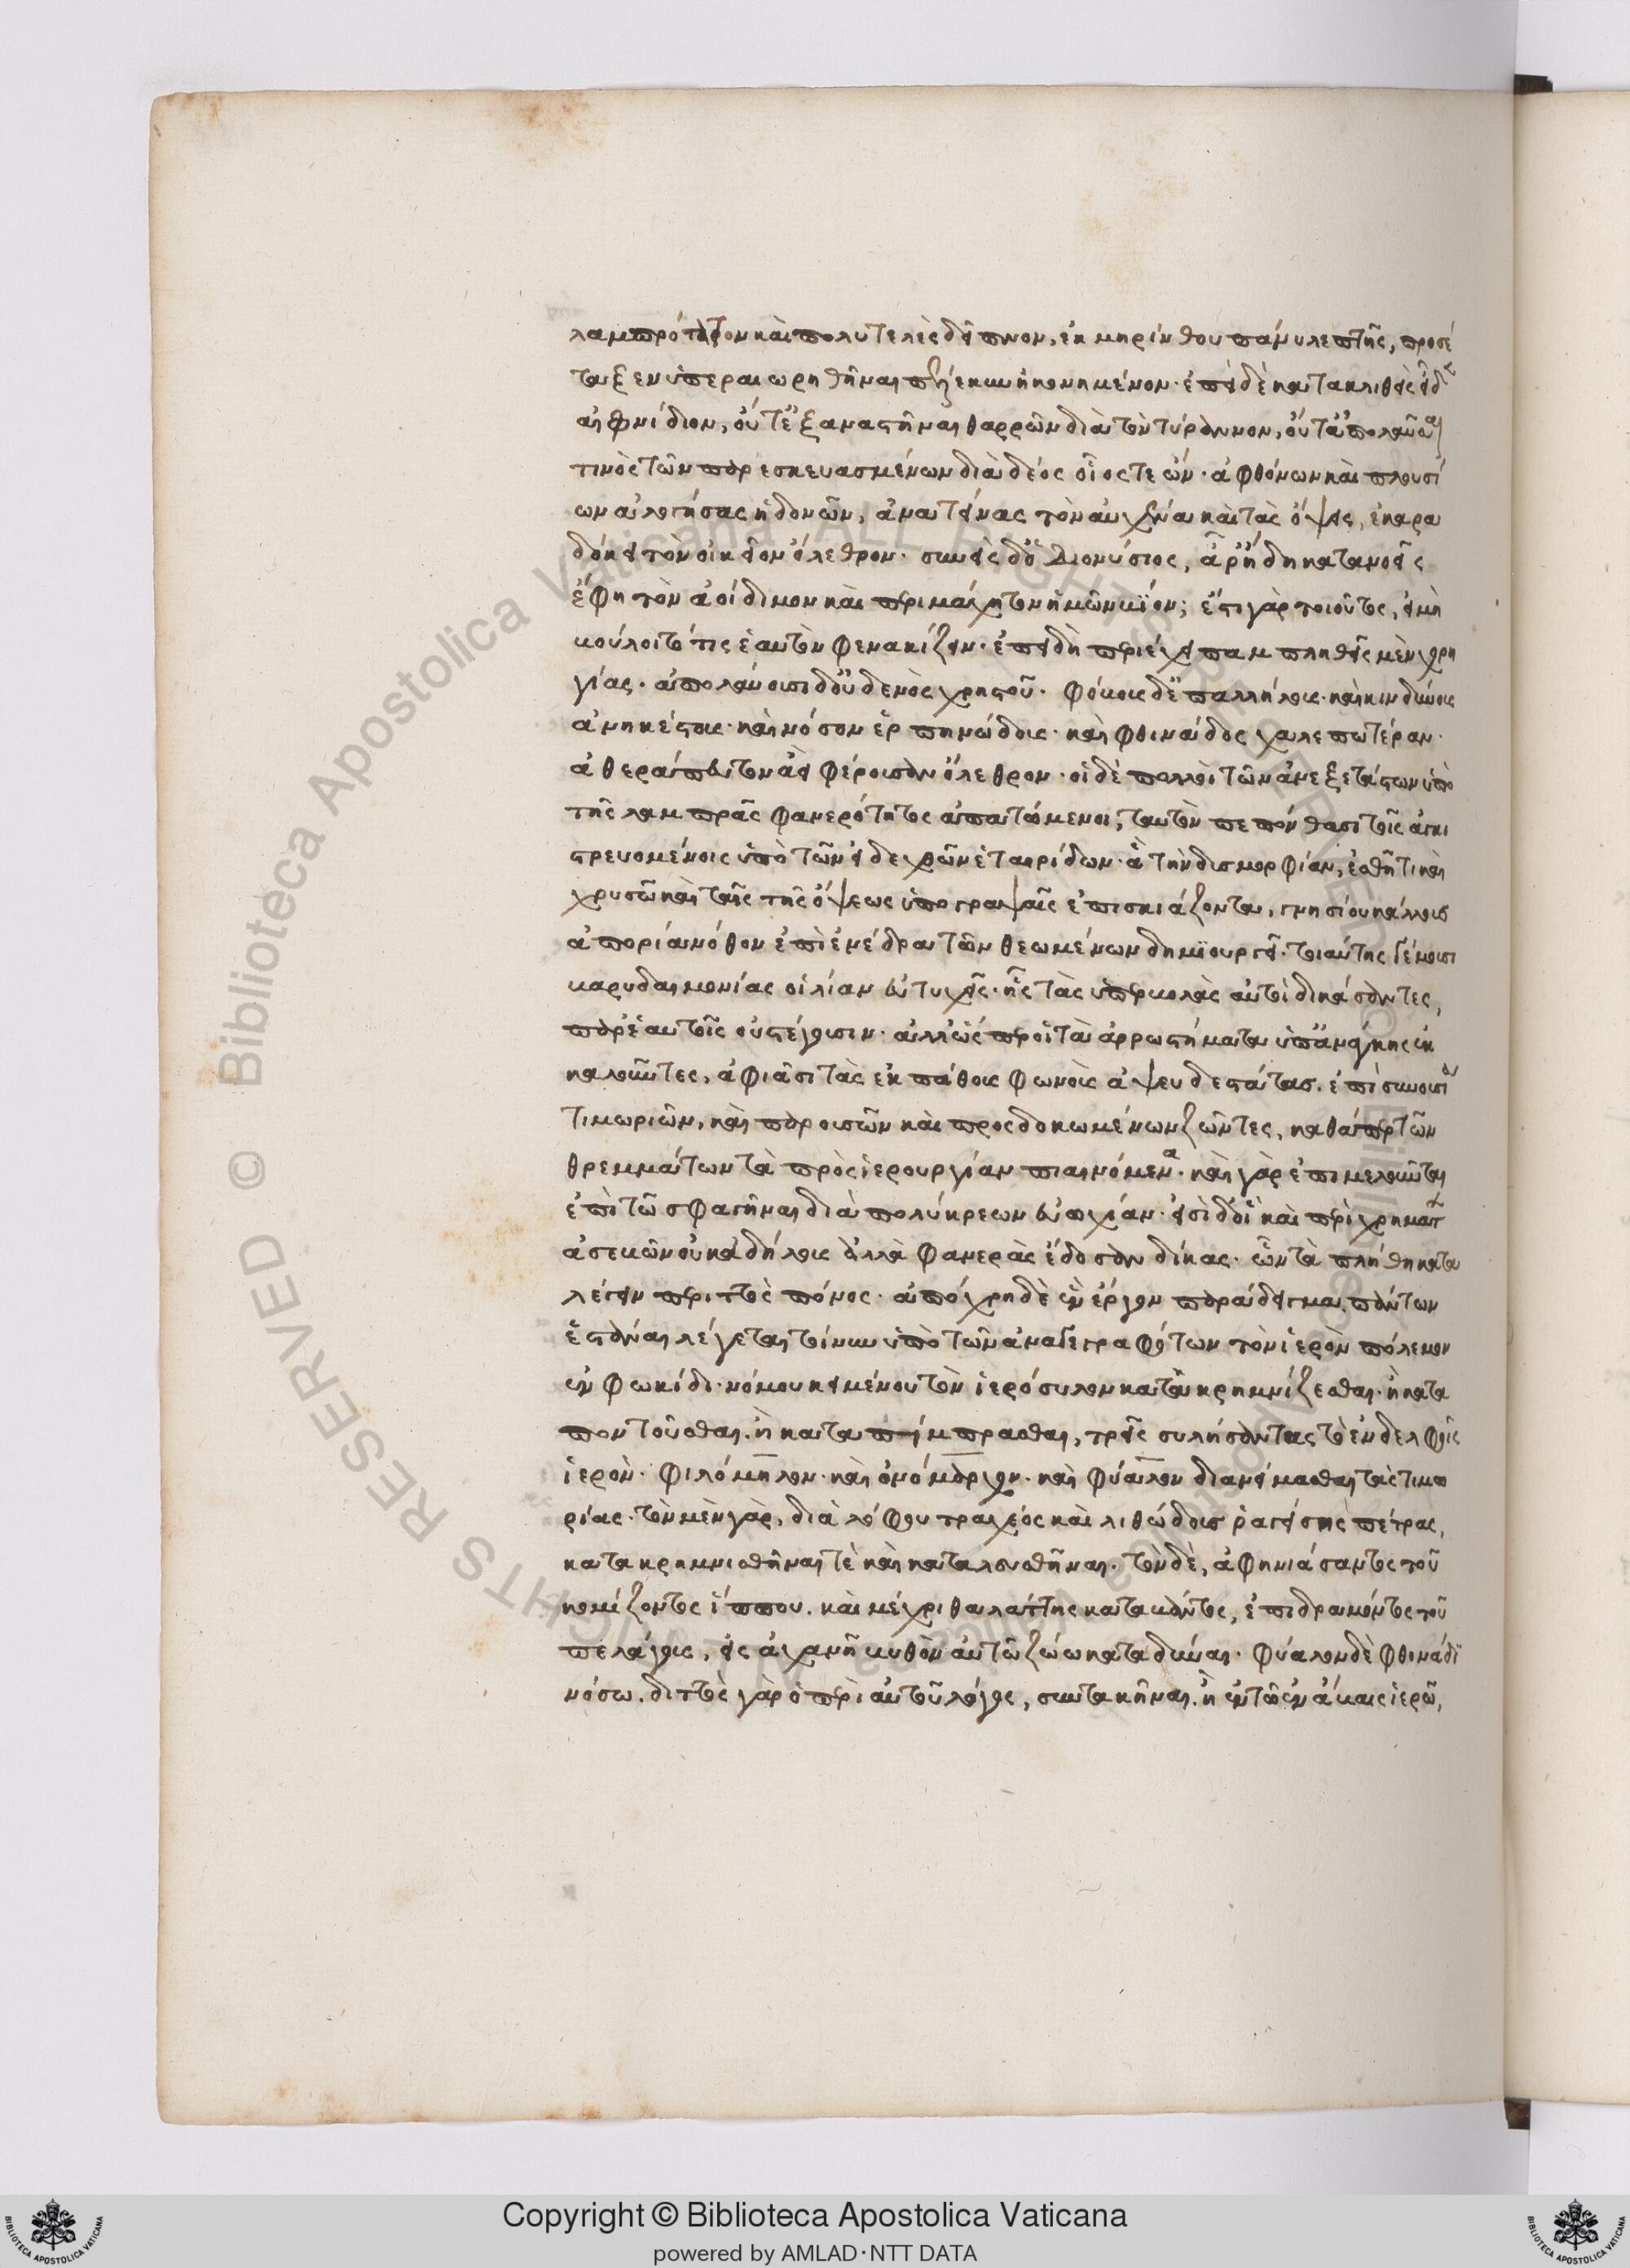 λαμπρότατον καὶ πολυτελὲς δεῖπνον, ἐκ μηρίνθου πάνυ λεπτῆς, προσέ
ταξεν ὑπεραιωρηθῆναι πέλεκυν ἠκονημένον· ἐπεὶ δὲ κατακλιθεὶς εἶδε
αἰφνίδιον, οὔτ' ἐξαναστῆναι θαρρῶν διὰ τὸν τύραννον, οὔτ' ἀπολαῦσαι
τινὸς τῶν παρεσκευασμένων διὰ δέος οἷός τε ὤν· ἀφθόνων καὶ πλουσί
ων ἀλογήσας ἡδονῶν, ἀνατείνας τὸν αὐχένα καὶ τὰς ὄψεις, ἐκαρα
δόκει τὸν οἰκεῖον ὄλεθρον· συνεὶς δ' ὁ Διονύσιος, ἆρ' ἤδη κατανοεῖς
ἔφη τὸν ἀοίδιμον καὶ περιμάχητον ἡμῶν βίον; ἔστι γὰρ τοιοῦτος, εἰ μὴ
βούλοιτό τις ἑαυτὸν φενακίζειν· ἐπειδὴ περιέχει παμπληθεῖς μὲν χορη
γίας· ἀπόλαυσιν δ' οὐδενὸς χρηστοῦ· φόβους δ' ἐπαλλήλους· καὶ κινδύνους
ἀνηκέστους· καὶ νόσον ἑρπηνώδους· καὶ φθινάδος χαλεπωτέραν·
ἀθεράπευτον ἀεὶ φέρουσαν ὄλεθρον· οἱ δὲ πολλοὶ τῶν ἀνεξετάστων ὑπὸ
τῆς λαμπρᾶς φανερότητος ἀπατώμενοι, ταυτὸν πεπόνθασι τοῖς ἀγκι
στρευομένοις ὑπὸ τῶν εἰδεχθῶν ἑταιρίδων· αἳ τὴν δυσμορφίαν, ἐσθῆτι καὶ
χρυσῷ καὶ ταῖς τῆς ὄψεως ὑπογραφαῖς ἐπισκιάζονται, γνησίου κάλλους
ἀπορίᾳ νόθον ἐπ' ἐνέδρᾳ τῶν θεωμένων δημιουργεῖ· τοιαύτης γέμουσι
βαρυδαιμονίας οἱ λίαν εὐτυχεῖς· ἧς τὰς ὑπερβολὰς αὐτοὶ δικάσαντες,
παρ' ἑαυτοῖς οὐ στέγουσιν· ἀλλ' ὡς περ οἱ τὰ ἀρρωστήματα ὑπ' ἀνάγκης ἐκ
καλοῦντες, ἀφιᾶσι τὰς ἐκ πάθους φωνὰς ἀψευδεστάτας. ἐπὶ συνουσίᾳ
τιμωριῶν, καὶ παρουσῶν καὶ προσδοκωμένων ζῶντες, καθάπερ τῶν
θρεμμάτων τὰ πρὸς ἱερουργίαν πιαινόμενα· καὶ γὰρ ἐπιμελοῦνται
ἐπὶ τῷ σφαγῆναι διὰ πολύκρεων εὐωχίαν· εἰσὶ δ' οἳ καὶ περὶ χρημάτων
ἀσεβῶν οὐκ ἀδήλους ἀλλὰ φανερὰς ἔδοσαν δίκας· ὧν τὰ πλήθη κατα
λέγειν περιττὸς πόνος· ἀπόχρη δὲ ἓν ἔργον παράδειγμα πάντων
ἑστάναι· λέγεται τοίνυν ὑπὸ τῶν ἀναγεγραφότων τὸν ἱερὸν πόλεμον
ἐν Φωκίδι· νόμου κειμένου τὸν ἱερόσυλον κατακρημνίζεσθαι· ἢ κατα
ποντοῦσθαι, ἢ καταπίμπρασθαι, τρεῖς συλήσαντας τὸ ἐν Δελφοῖς
ἱερὸν· Φιλόμηλον· καὶ Ὀνόμαρχον· καὶ Φάϋλλον διανείμασθαι τὰς τιμω
ρίας· τὸν μὲν γὰρ, διὰ λόφου τραχέος καὶ λιθώδους ῥαγείσης πέτρας,
κατακρημνισθῆναί τε καὶ καταλευσθῆναι· τὸν δὲ, ἀφηνιάσαντος τοῦ
κομίζοντος ἵππου, καὶ μέχρι θαλάττης καταβάντος, ἐπιδραμόντος τοῦ
πελάγους, εἰς ἀχανῆ βυθὸν αὐτῷ ζώῳ καταδῦναι· Φάϋλλον δὲ φθινάδι
νόσῳ, διττὸς γὰρ ὁ περὶ αὐτοῦ λόγος, συντακῆναι, ἢ ἐν τῷ ἐν Ἄβαις ἱερῷ,